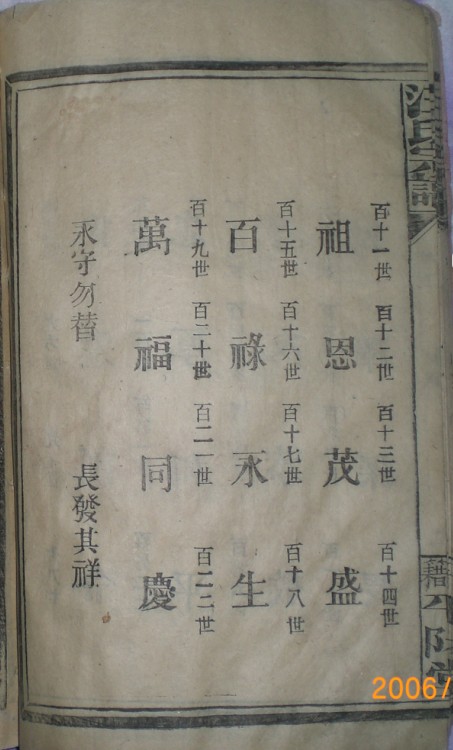 汪氏宗譜
百十一世 百十二世 百十三世 百十四世
祖恩茂盛
百十五世 百十六世 百十七世 百十八世
百祿永生
百十九世 百二十世 百二一世 百二二世
萬福同慶
永守勿替 長發其祥
2006/